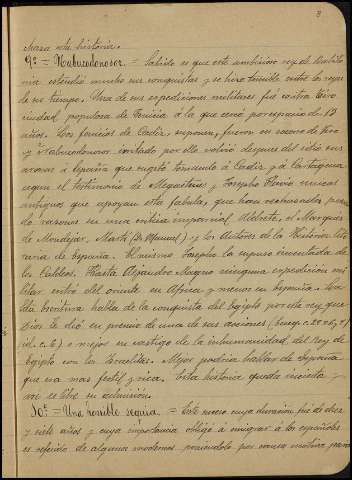 8
esta historia.
9º = Nabucodonosor. = Sabido es que este ambicioso rey de Babilo
nia estendió mucho sus conquistas y se hizo temible entre los reyes
de su tiempo. Una de sus expediciones militares fué contra Tiro
ciudad populosa de Fenicia á la que cercó por espacio de 13
años. Los fenicios de Cadiz, suponen, fueron en socorro de Tiro
y Nabucodonosor irritado por ello volvió despues del sitio sus
armas á España que sugetó tomando á Cadiz y á Cartagena
segun el testimonio de Megastenes y Josepho Flavio unicos
antiguos que apoyan esta fabula, que han rechazado
razones su una critica imparcial Alderete, el Marqués
de Mondejar, Martí (Dn. Manuel) y los Autores de la Historia Lite
raria de España. El mismo Josepho la supone inventada de
los Caldeos. Hasta Alejandro Magno ninguna expedicion mi
litar entró del oriente en Africa y menos en España. La
Escritura habla de la conquista del Egipto por este rey que
Dios le dió en premio de una de sus acciones
ó mejor en castigo de la inhumanidad del Rey de
Egipto con los Israelitas. Mejor podria hablar de España
que era mas fertil y rica. Esta historia queda incierta y
10º = Una horrible sequia. = Este suceso cuya duracion fué de diez
y siete años y cuya importancia obligó á emigrar á los españoles
es referido de algunos modernos poniendolo por causa motiva para